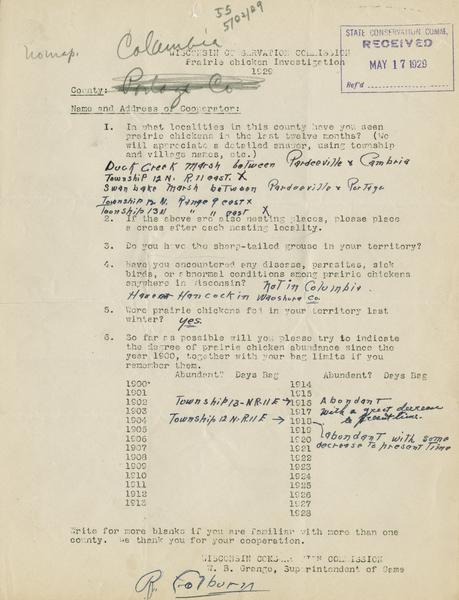 55
5/02/29
nomap.
Columbia
WISCONSIN CONSERVATION COMMISSION
Prairie Chicken Investigation
1929
STATE CONSERVATION COMM.
RECEIVED
MAY 17 1929
Ref'd
County: Portage Co
Name and Address of Cooperator:
1. In what localities in this county have you seen
prairie chickens in the last twelve months? (We
will appreciate a detailed answer, using township
and village names, etc.)
Duck Creek Marsh between Pardeeville & Cambria
Township 12 N. R. 11 east. X
Swan Lake Marsh between Pardeeville & Portage
Township 12 N. Range 9 east X
Township 13 N " " east X
2. If the above are also nesting places, please place
a cross after each nesting locality.
3. Do you have the sharp-tailed grouse in your territory?
4. Have you encountered any disease, parasites, sick
birds, or abnormal conditions among prairie chickens
anywhere in Wisconsin? Not in Columbia.
Hancock in Waushara Co.
5. Were prairie chickens fed in your territory last
winter? yes.
6. So far as possible will you please try to indicate
the degree of prairie chicken abundance since the
year 1900, together with your bag limits if you
remember them.
Abundant? Days Bag Abundant? Days Bag
1900 1914
1901 1915
1902 Township 13-N R-11 E → 1916 Abondant
1903 1917 with a great decrease
1904 Township 12 N R-11 E → 1918 to present time.
1905 1919
1906 1920 abondant with some
1907 1921 decrease to present time
1908 1922
1909 1923
1910 1924
1911 1925
1912 1926
1913 1927
1928
Write for more blanks if you are familiar with more than one
county. We thank you for your cooperation.
WISCONSIN CONSERVATION COMMISSION
W. B. Grange, Superintendent of Game
R. Colburn